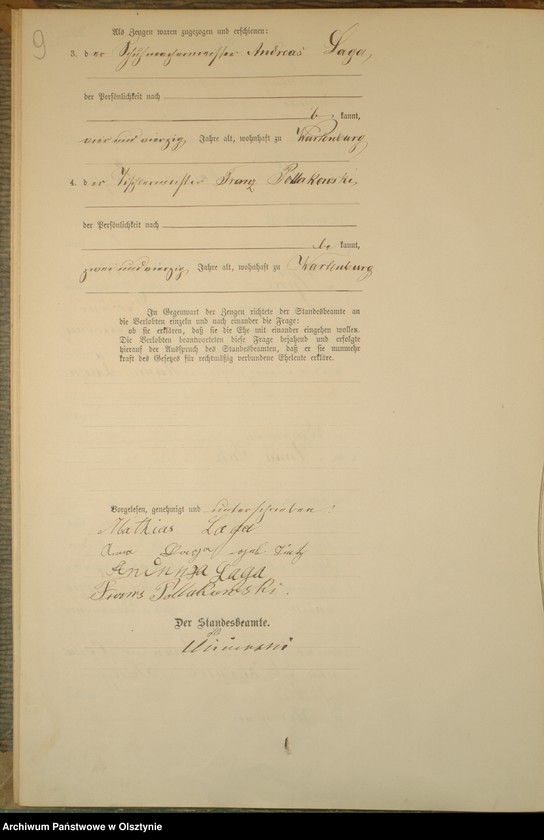 9
Als Zeugen waren zugezogen und erschienen:
3. der Schuhmachermeister Andreas Laga,
der Persönlichkeit nach
be kannt,
vier und vierzig Jahre alt, wohnhaft zu Wartenburg
4. der Tischlermeister Franz Pollakowski,
der Persönlichkeit nach
be kannt,
zwei und vierzig Jahre alt, wohnhaft zu Wartenburg
In Gegenwart der Zeugen richtete der Standesbeamte an
die Verlobten einzeln und nach einander die Frage:
ob sie erklären, daß sie die Ehe mit einander eingehen wollen.
Die Verlobten beantworteten diese Frage bejahend und erfolgte
hierauf der Ausspruch des Standesbeamten, daß er sie nunmehr
kraft des Gesetzes für rechtmäßig verbundene Eheleute erkläre.
Vorgelesen, genehmigt und unterschrieben:
Mathias Laga
Anna Laga geb
Laga
Franz Pollakowski.
Der Standesbeamte.
Archiwum Państwowe w Olsztynie